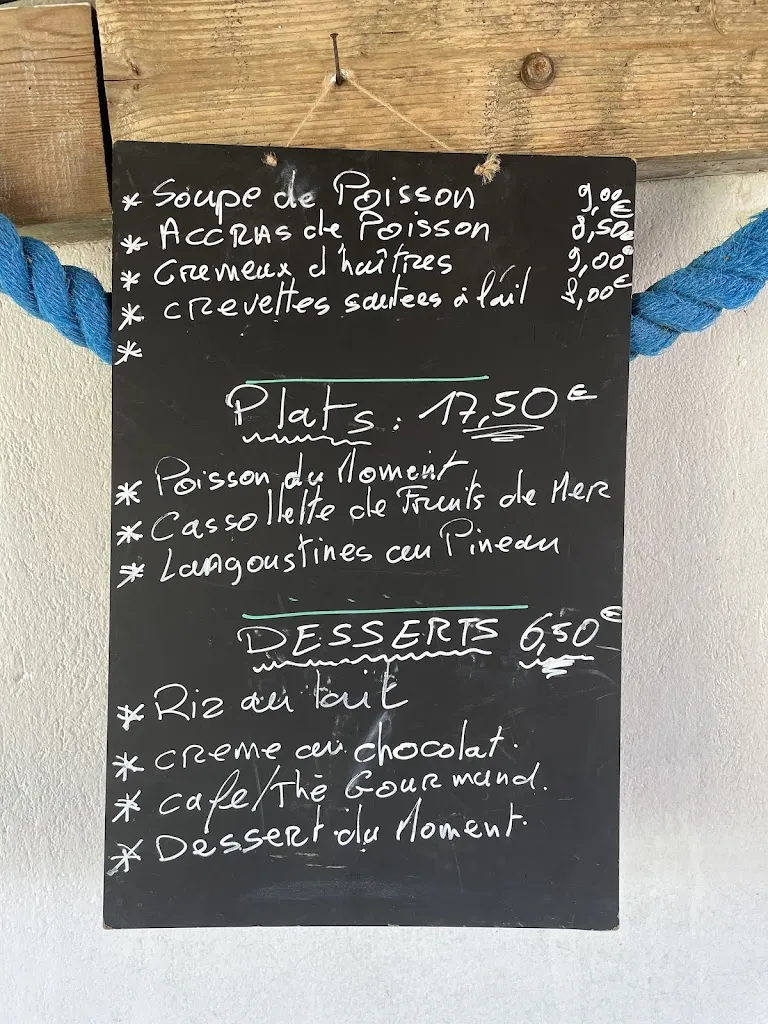 * Soupe de Poisson 9,00€
* ACCRAS de Poisson 8,50€
* Cremeux d'huîtres 9,00€
* CREVettes sautees à l'ail 9,00€
*
Plats : 17,50€
* Poisson du Moment
* Cassollette de Fruits de Mer
* Langoustines au Pineau
DESSERTS 6,50€
* Riz au lait
* CREME au chocolat.
* cafe/Thé Gourmand.
* Dessert du Moment.